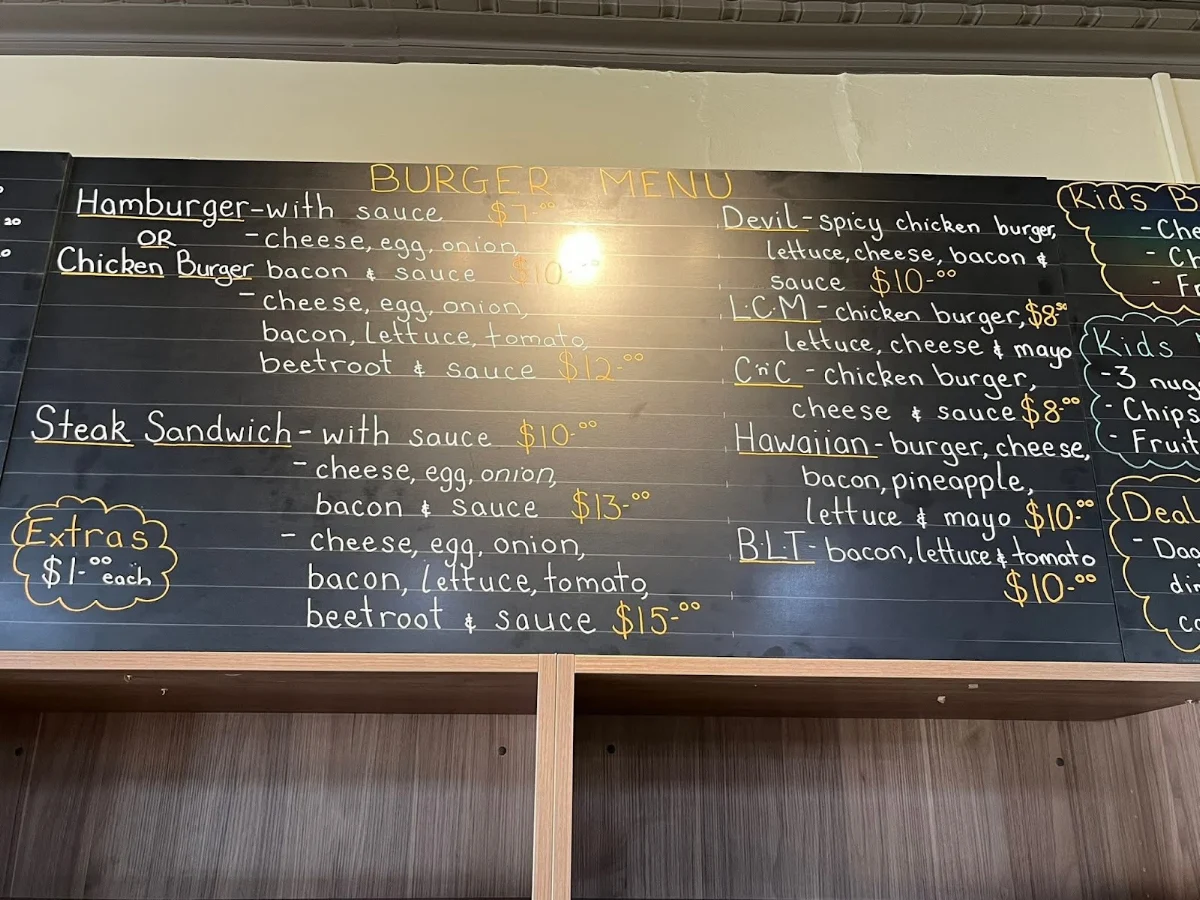 BURGER MENU
Hamburger - with sauce $7-.00
OR - cheese, egg, onion
Chicken Burger bacon & sauce $10-
- cheese, egg, onion,
bacon, lettuce, tomato,
beetroot & sauce $12-.00
Steak Sandwich - with sauce $10-.00
- cheese, egg, onion,
bacon & sauce $13-.00
- cheese, egg, onion,
bacon, lettuce, tomato,
beetroot & sauce $15-.00
Extras
$1-.00 each
Devil - spicy chicken burger,
lettuce, cheese, bacon &
sauce $10-.00
L.C.M - chicken burger, $8.50
lettuce, cheese & mayo
C'n'C - chicken burger,
cheese & sauce $8-.00
Hawaiian - burger, cheese,
bacon, pineapple,
lettuce & mayo $10-.00
B.L.T - bacon, lettuce & tomato
$10-.00
Kids B
- Che
- Ch
- Fr
Kids
- 3 nug
- Chips
- Fruit
Deal
- Dag
din
co
20